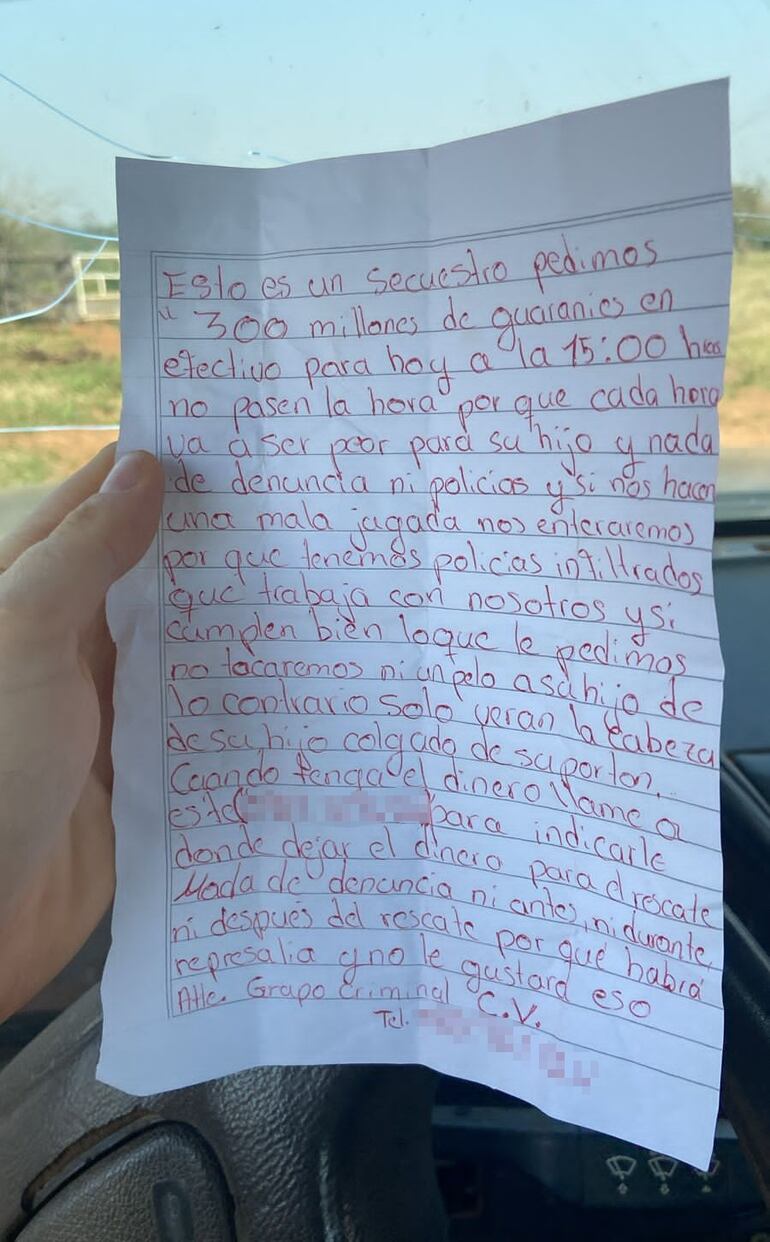 Esto es un secuestro pedimos
" 300 millones de guaranies en
efectivo para hoy a la 15:00 hras
no pasen la hora por que cada hora
va a ser peor para su hijo y nada
de denuncia ni policias y si nos hacen
una mala jugada nos enteraremos
por que tenemos policias infiltrados
que trabaja con nosotros y si
cumplen bien loque le pedimos
no tocaremos ni un pelo a su hijo de
lo contrario solo veran la cabeza
de su hijo colgado de su porton.
Cuando tenga el dinero llame a
este para indicarle
donde dejar el dinero para el rescate
Nada de denuncia ni antes, ni durante,
ni después del rescate por que habrá
represalia y no le gustará eso
Atte. Grupo Criminal C.V.
Tel.